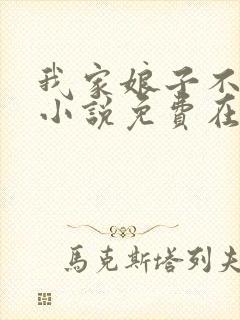 我家娘子不
小說免費在
馬克斯塔列夫